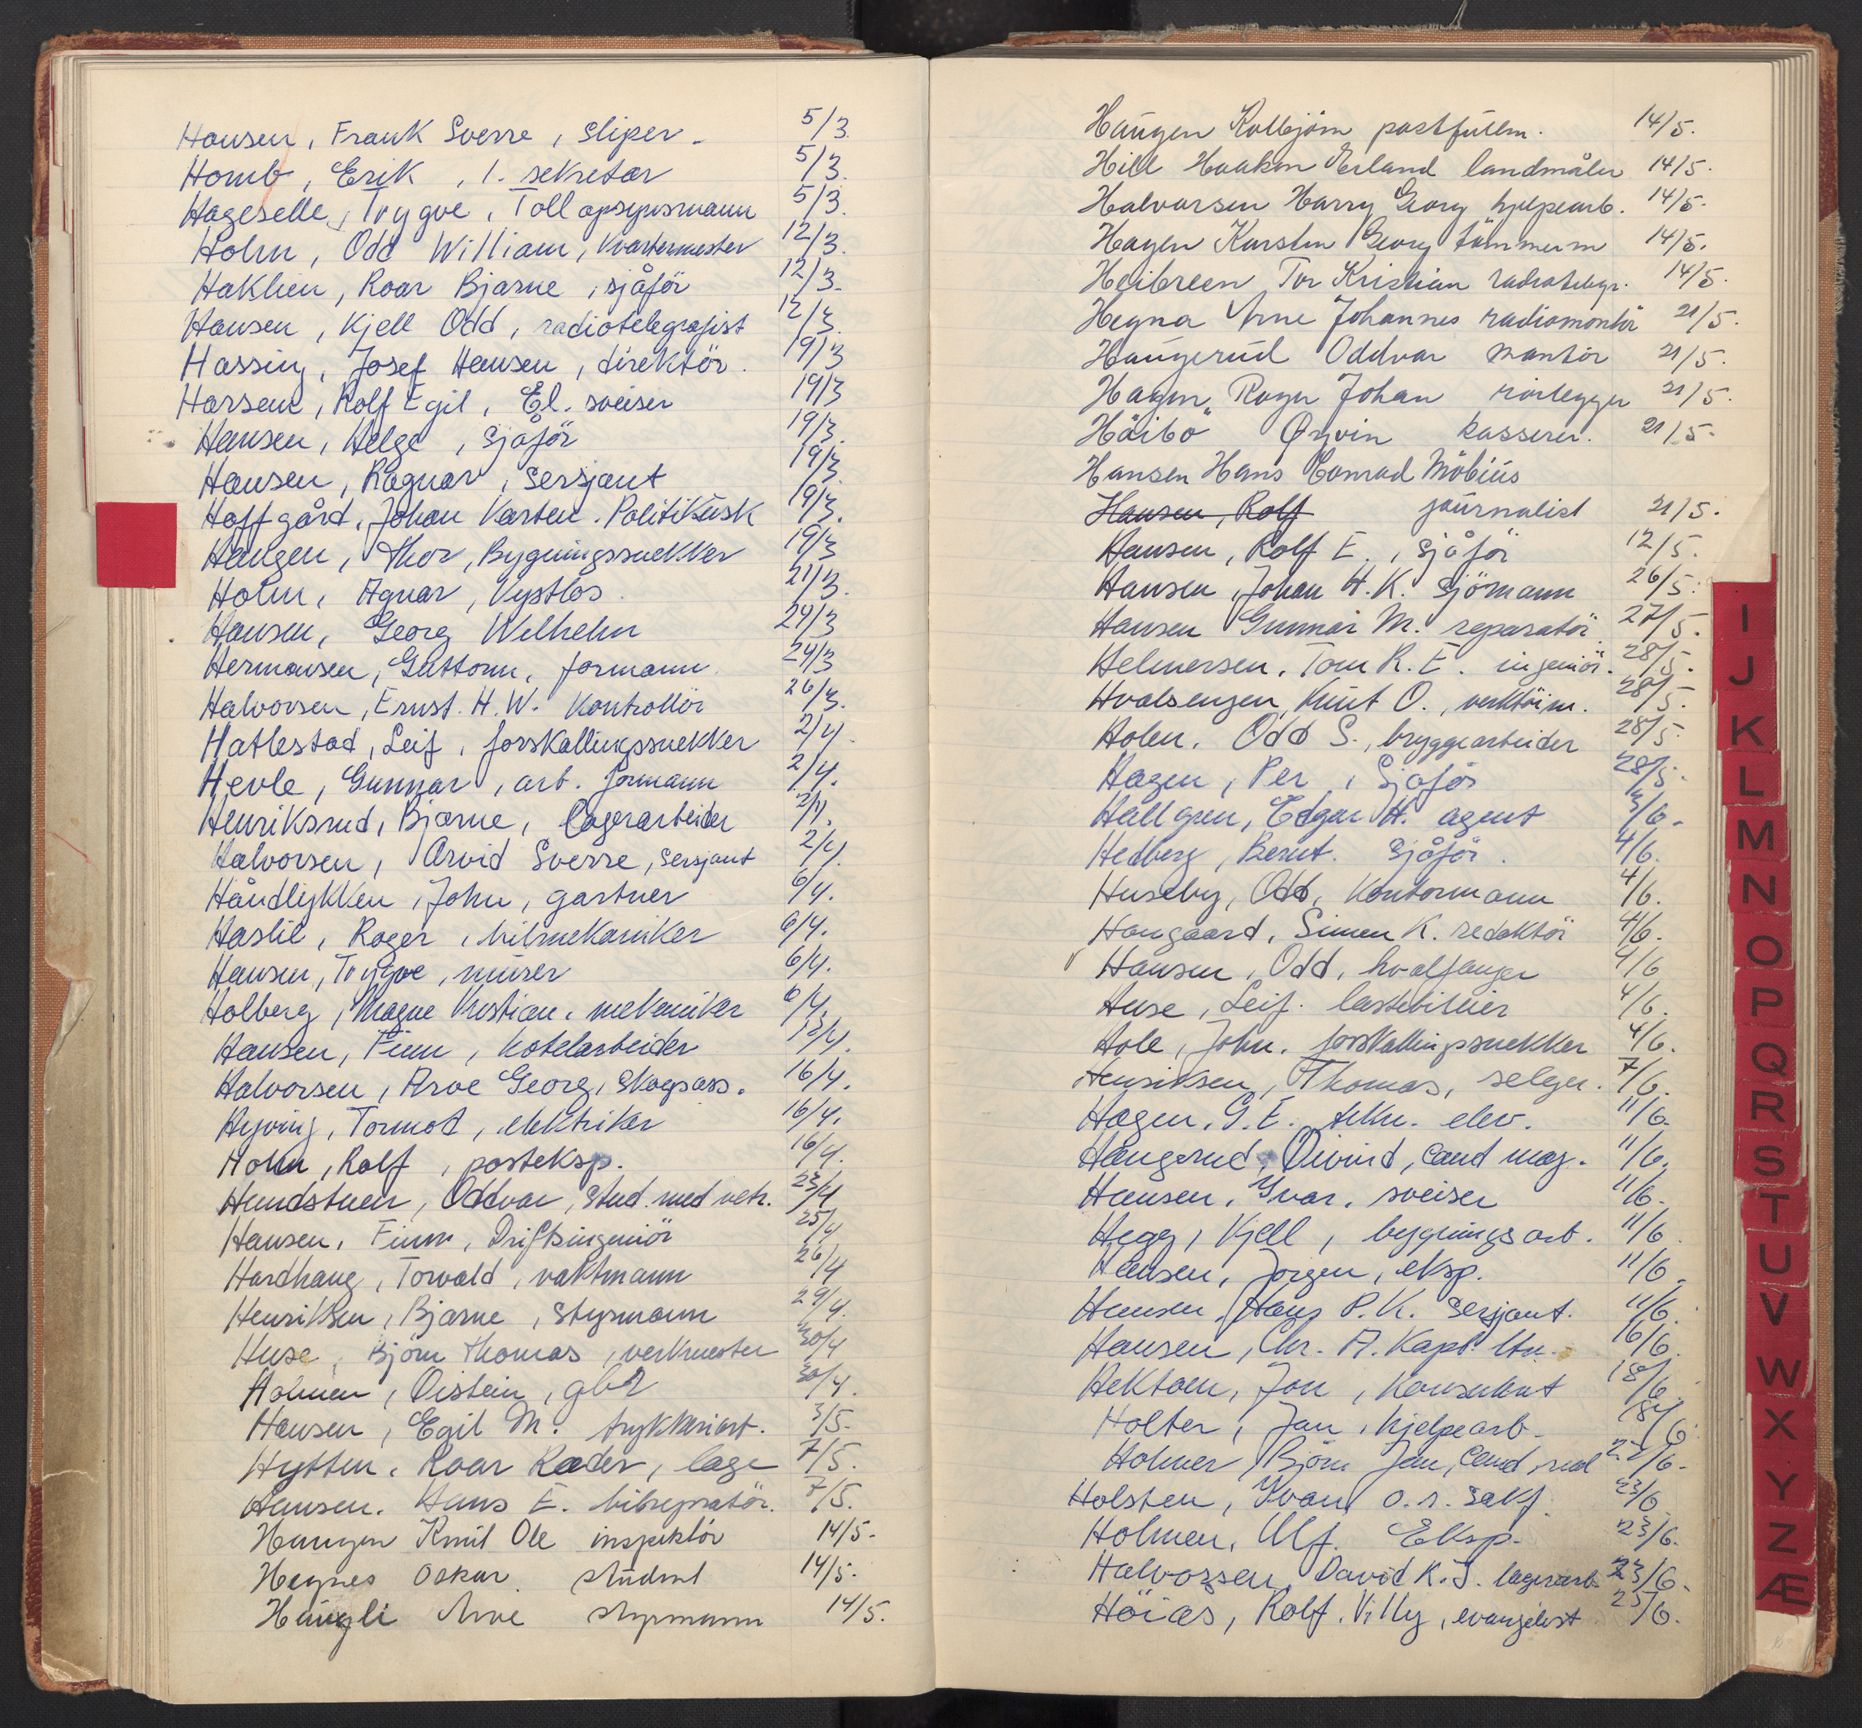 Hansen, Frank Sverre, Sliper. 5/3.
Homb, Erik, 1. sekretær 5/3.
Hageselle, Trygve, Tollopsynsmann 5/3.
Holm, Odd William, Kvartermester 12/3.
Haklien, Roar Bjarne, sjåför 12/3.
Hansen, Kjell Odd, radiotelegrafist 12/3.
Hassing, Josef Hansen, direktör. 19/3
Hansen, Rolf Egil, El. sveiser 19/3
Hansen, Helge, Sjåför 19/3.
Hansen, Ragnar, Sersjant 19/3.
Hoffgård, Johan Karsten. Politikusk 19/3.
Haugen, Thor, Bygningssnekker 19/3
Holm, Agnar, Kystlos. 21/3.
Hansen, Georg Wilhelm 24/3
Hermansen, Guttorm, formann. 24/3
Halvorsen, Ernst. H. W. Kontrollör 26/3.
Hatlestad, Leif, forskallingssnekker 2/4.
Hevle, Gunnar, arb. formann 2/4.
Henriksrud, Bjarne, lagerarbeider 2/4.
Halvorsen, Arvid Sverre, Sersjant 2/4.
Håndlykken, John, gartner 6/4.
Haslie, Roger, bilmekaniker 6/4.
Hansen, Trygve, murer 6/4.
Holberg, Magne Kristian, mekaniker 6/4.
Hansen, Finn, hotelarbeider 13/4.
Halvorsen, Arve Georg, Skogsass. 16/4.
Hyving, Tormod, elektriker 16/4.
Holm, Rolf, posteksp. 16/4.
Hundstuen, Oddvar, Stud. med vetr. 23/4
Hansen, Finn, Driftsingeniör 25/4
Hardhaug, Torvald, vaktmann 26/4
Henriksen, Bjarne, Styrmann 29/4.
Huse, Björn Thomas, verkmester 30/4
Holmen, Öistein, gbr 30/4.
Hansen, Egil M. trykkeriarb. 3/5.
Hytten, Roar Ræder, lege 7/5.
Hansen. Hans E. bilreparatör. 7/5.
Haugen Knut Ole inspektör 14/5.
Hegnes Oskar. student 14/5.
Haugli Arve styrmann 14/5.
Haugen Kolbjörn postfullm. 14/5.
Hill Haakon Erland landmåler 14/5.
Halvorsen Harry Georg hjelpearb. 14/5.
Hagen Karsten Georg tömmerm 14/5.
Heibreen Tor Kristian radiotelegr. 14/5.
Hegna Arne Johannes radiomontör 21/5.
Haugerud Oddvar montör 21/5.
Hagen Roger Johan rörlegger 21/5.
Häibö Øyvin kasserer. 21/5.
Hansen Hans Conrad Möbius
Hansen, Rolf journalist 21/5.
Hansen, Rolf E., Sjåför 12/5.
Hansen, Johan H. K. Sjömann 26/5.
Hansen Gunnar M. reparatör. 27/5.
Helmersen, Tom R. E. ingeniör. 28/5.
Hvalsengen, Knut O., verktöim. 28/5.
Holen. Odd S., bryggearbeider 28/5.
Hagen, Per, Sjåför 28/5.
Hallgren, Edgar H. agent 3/6.
Hedberg, Bernt. Sjåför. 4/6.
Huseby, Odd, Kontormann 4/6.
Haugaard, Simen K. redaktör 4/6.
Hansen, Odd, hvalfanger 4/6
Huse, Leif. lastebileier 4/6.
Hole, John. forskallingssnekker 4/6.
Henriksen, Thomas, selger. 7/6.
Hagen. G. E. tekn. elev. 11/6.
Haugerud, Öivind, cand mag. 11/6.
Hansen, Yvar, sveiser 11/6.
Hegg, Kjell, bygningsarb. 11/6.
Hansen, Jörgen, eksp. 11/6.
Hansen, Hans P. K. Sersjant. 11/6.
Hansen, Chr. A. Kapt. ltn. 16/6.
Hektoen, Jon, Konsulent 18/6.
Holter, Jan, hjelpearb. 18/6.
Holmer, Björn Jan, Cand. real 22/6.
Holsten, Yvan, o.r. sakf. 23/6
Holmen, Ulf. Eksp. 23/6.
Halvorsen, David K. J. lagerarb. 23/6.
Höiås, Rolf. Villy, evangelist 25/6.
I
J
K
L
M
N
O
P
Q
R
S
T
U
V
W
X
Y
Z
Æ